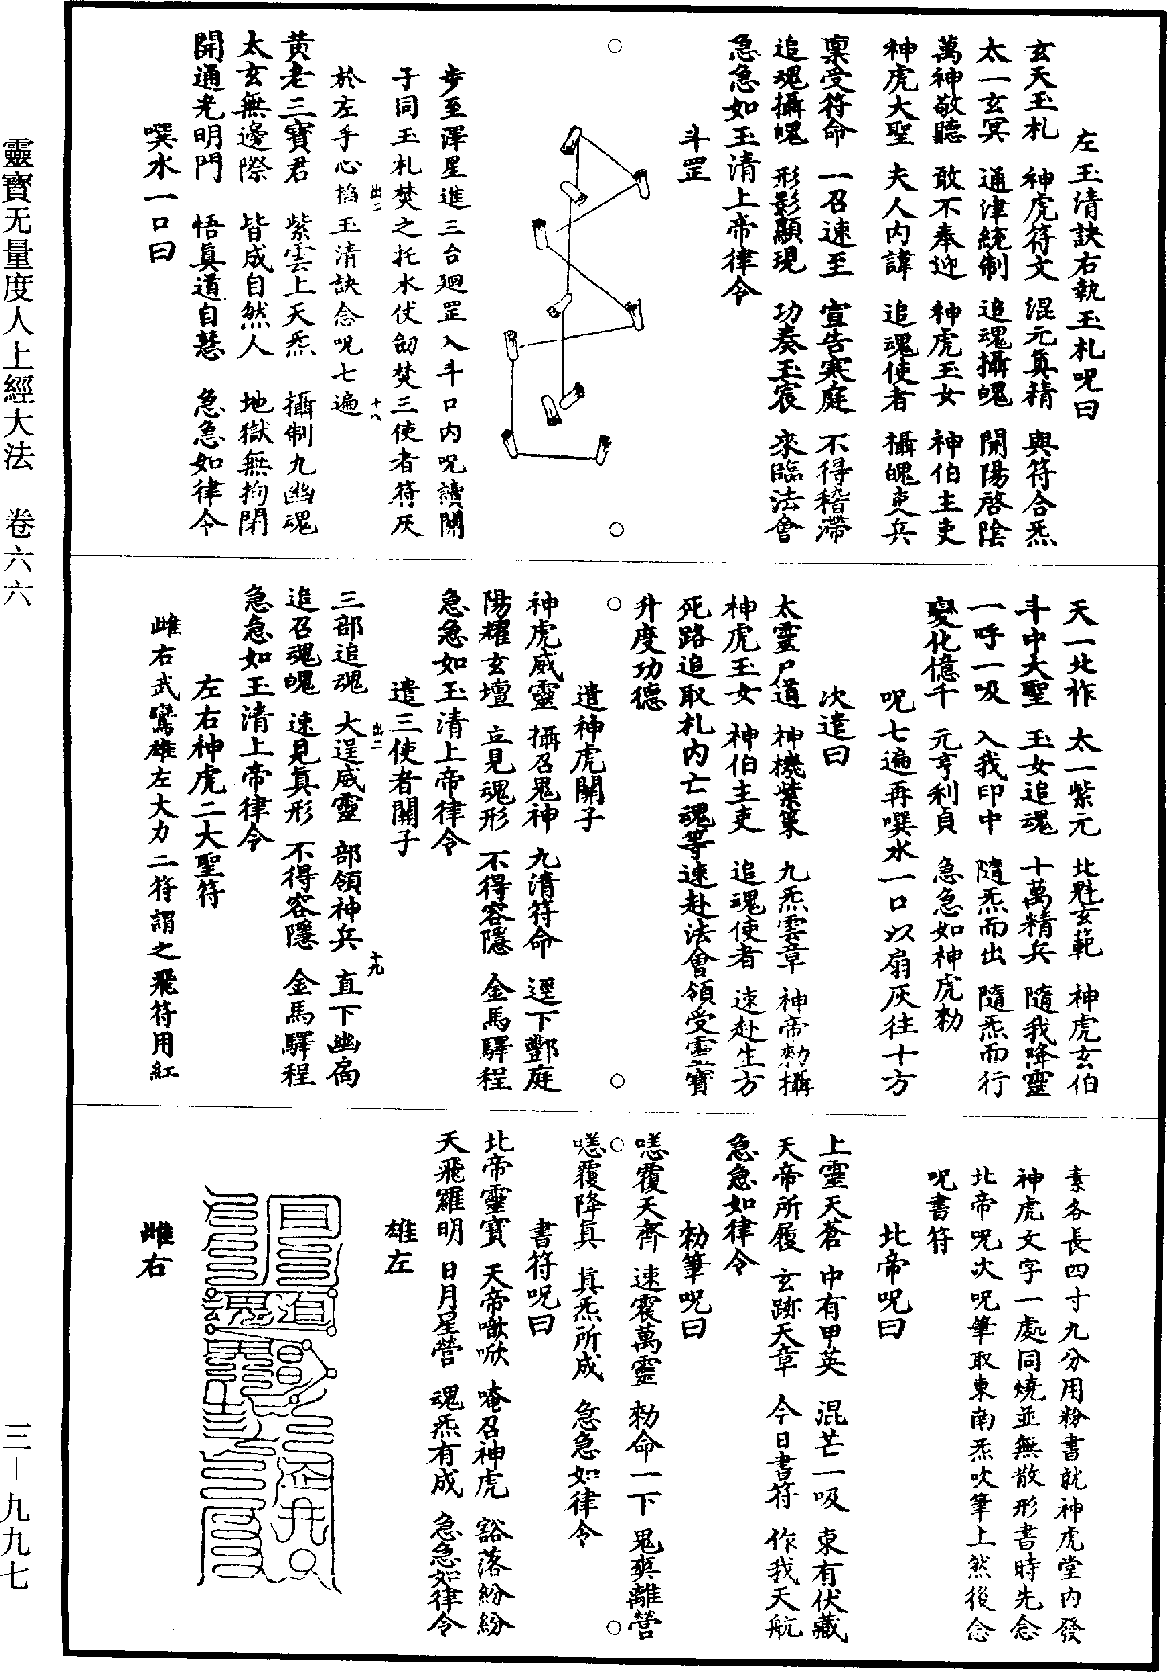 左玉清訣右執玉札呪曰
玄天玉札　神虎符文　混元真精　與符合炁
太一玄冥　通津統制　追魂攝魄　開陽啓陰
萬神敬聽　敢不奉迎　神虎玉女　神伯主吏
神虎大聖　夫人內諱　追魂使者　攝魄吏兵
稟受符命　一召速至　宣告寒庭　不得稽滯
追魂攝魄　形影顯現　功奏玉宸　來臨法會
急急如玉清上帝律令
斗罡
步至澤星進三台廻罡入斗口內呪讀關
子同玉札焚之托水仗劒焚三使者符灰
於左手心掐玉清訣念呪七遍
出二
十八
黄老三寶君　紫雲上天炁　攝制九幽魂
太玄無邊際　皆成自然人　地獄無拘閉
開通光明門　悟真道自慧　急急如律令
噀水一口曰
天一北柞　太一紫元　北魁玄範　神虎玄伯
斗中大聖　玉女追魂　十萬精兵　隨我降靈
一呼一吸　入我印中　隨炁而出　隨炁而行
變化億千　元亨利貞　急急如神虎勑
呪七遍再噀水一口以扇灰往十方
次遣曰
太靈尸道　神機紫篆　九炁雲章　神帝勑攝
神虎玉女　神伯主吏　追魂使者　速赴生方
死路追取札內亡魂等速赴法會領受靈寶
升度功德
遣神虎關子
神虎威靈　攝召鬼神　九清符命　逕下酆庭
陽耀玄壇　立見魂形　不得容隱　金馬驛程
急急如玉清上帝律令
遣三使者關子
三部追魂　大逞威靈　部領神兵　直下幽扃
出二
十九
追召魂魄　速見真形　不得容隱　金馬驛程
急急如玉清上帝律令
左右神虎二大聖符
雌右武鸞雄左大力二符謂之飛符用紅
素各長四寸九分用粉書就神虎堂內發
神虎文字一處同燒並無散形書時先念
北帝呪次呪筆取東南炁吹筆上然後念
呪書符
北帝呪曰
上靈天蒼　中有甲英　混芒一吸　東有伏藏
天帝所履　玄跡天章　今日書符　作我天航
急急如律令
勑筆呪曰
嘘覆天齊　速震萬靈　勑命一下　鬼爽離營
嘘覆降真　真炁所成　急急如律令
書符呪曰
北帝靈寶　天帝噷㗵　唵召神虎　豁落紛紛
天飛羅明　日月星營　魂炁有成　急急如律令
雄左
雌右
靈寶无量度人上經大法　卷六六
三－九九七